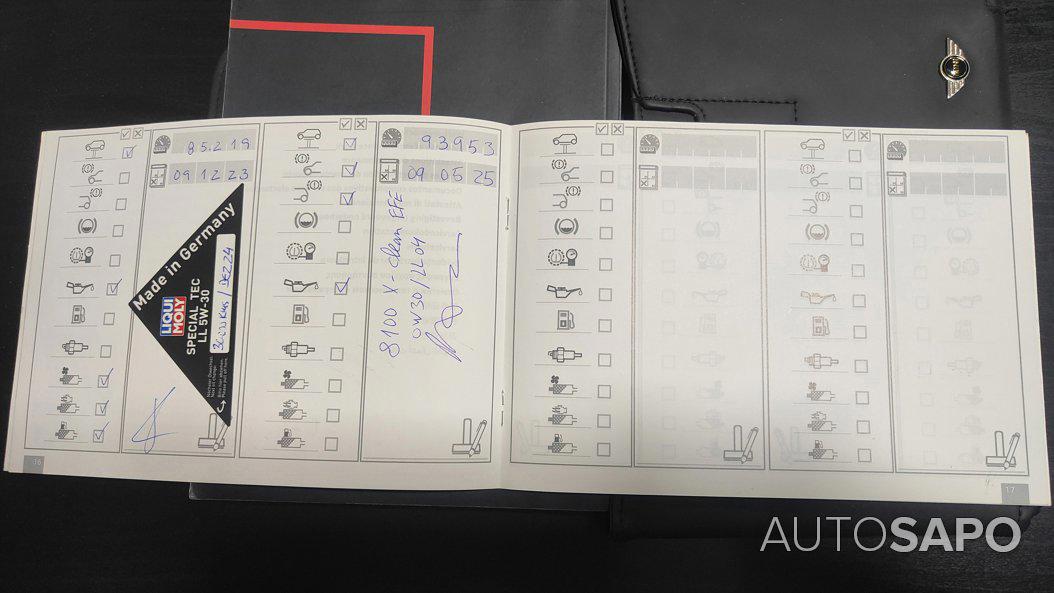 MINI
85219
09 12 23
Made in Germany
LIQUI
MOLY
SPECIAL TEC
LL 5W-30
30.000 Kms / DEZ 24
93953
09 05 25
8100 X-clean EFE
0W30/LL04
16
17
AUTOSAPO